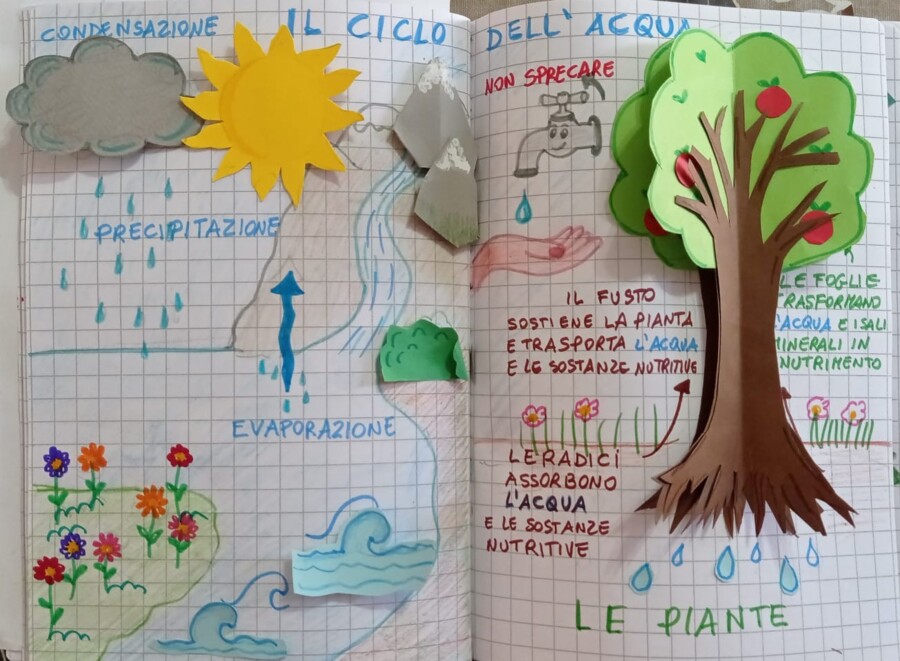 CONDENSAZIONE
IL CICLO DELL'ACQUA
PRECIPITAZIONE
EVAPORAZIONE
NON SPRECARE
IL FUSTO
SOSTIENE LA PIANTA
E TRASPORTA L'ACQUA
E LE SOSTANZE NUTRITIVE
LE FOGLIE
TRASFORMANO
L'ACQUA E I SALI
MINERALI IN
NUTRIMENTO
LE RADICI
ASSORBONO
L'ACQUA
E LE SOSTANZE
NUTRITIVE
LE PIANTE